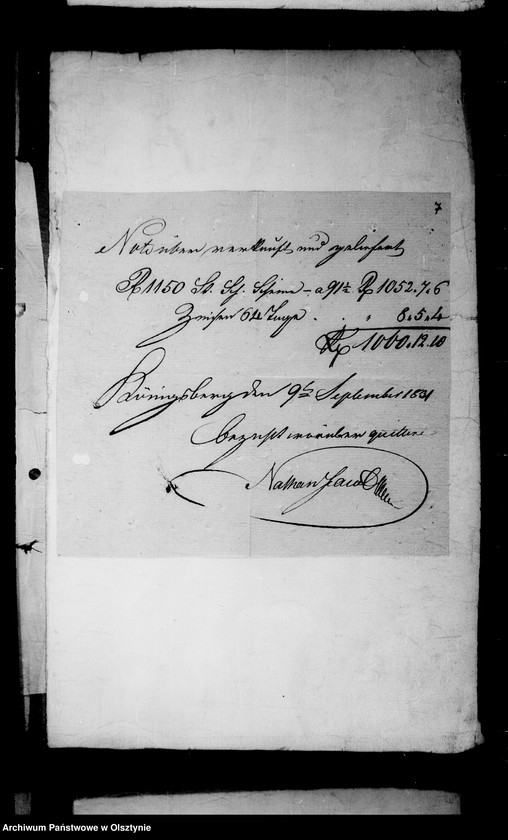 7
Nota über verkauft und geliefert
Rp 1150 St. Sch. Scheine - a 91½ Rp 1052.7.6
Zinsen 64 Tage . . " 8.5.4
Rp 1060.12.10
Königsberg den 9t September 1831
bezahlt worüber quittire
Nathan Jacob
Archiwum Państwowe w Olsztynie